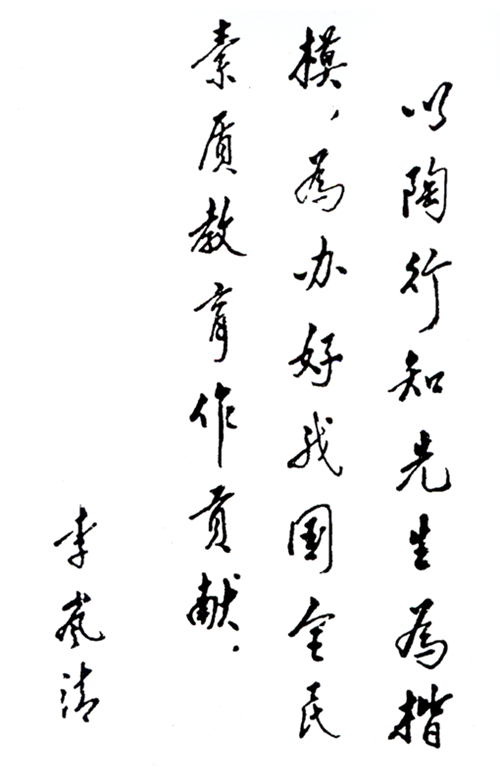 以陶行知先生為楷
模，為办好我国全民
素质教育作贡献．
李岚清